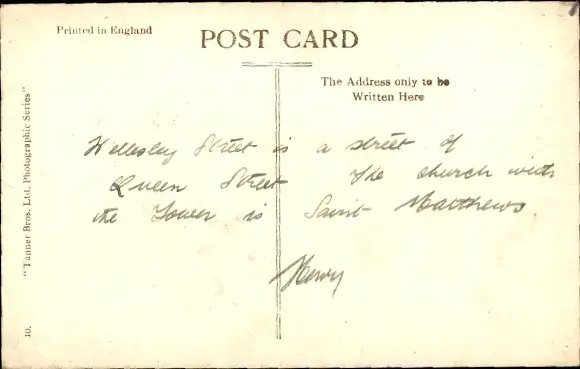 Printed in England
POST CARD
The Address only to be
Written Here
Wellesley Street is a street of
Queen Street The church with
the Tower is Saint Matthews
Henry
"Tanner Bros. Ltd. Photographic Series"
10.